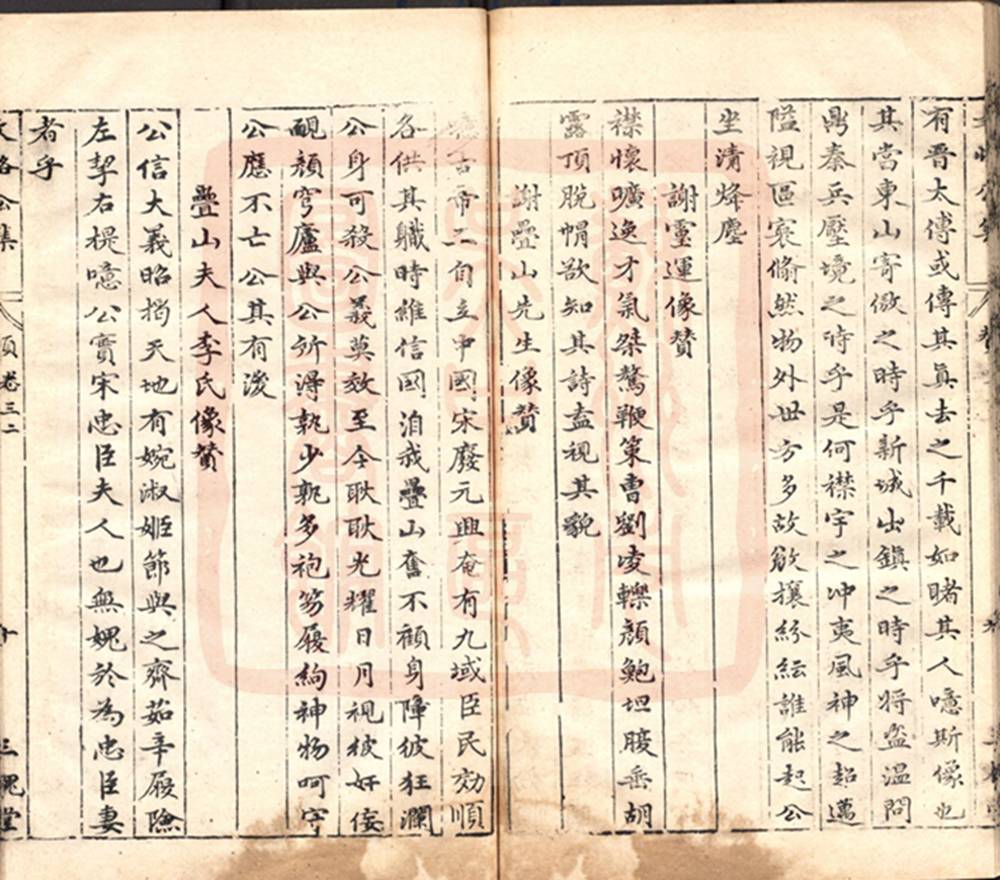 有晋太傅或傳其眞去之千載如睹其人噫斯像也
其當東山寄傲之時乎新城出鎮之時乎將盗温問
鼎秦兵壓境之時乎是何襟宇之冲夷風神之超邁
隘視區寰翛然物外世方多故敓攘紛紜誰能起公
坐清烽塵
謝靈運像賛
襟懷曠逸才氣桀驁鞭策曹劉凌轢顔鮑坦腹垂胡
露頂脫帽欲知其詩盍視其貌
謝疊山先生像賛
古帝二自立中國宋廢元興奄有九域臣民効順
各供其職時維信國洎我疊山奮不顧身障彼狂瀾
公身可殺公義莫效至今耿耿光耀日月視彼奸佞
靦顔穹廬與公所得孰少孰多袍笏履絇神物呵守
公應不亡公其有後
疊山夫人李氏像賛
公信大義昭揭天地有婉淑姬節與之齊茹辛履險
左挈右提噫公實宋忠臣夫人也無媿於為忠臣妻
者乎
公集 頌卷三二 十 三槐堂